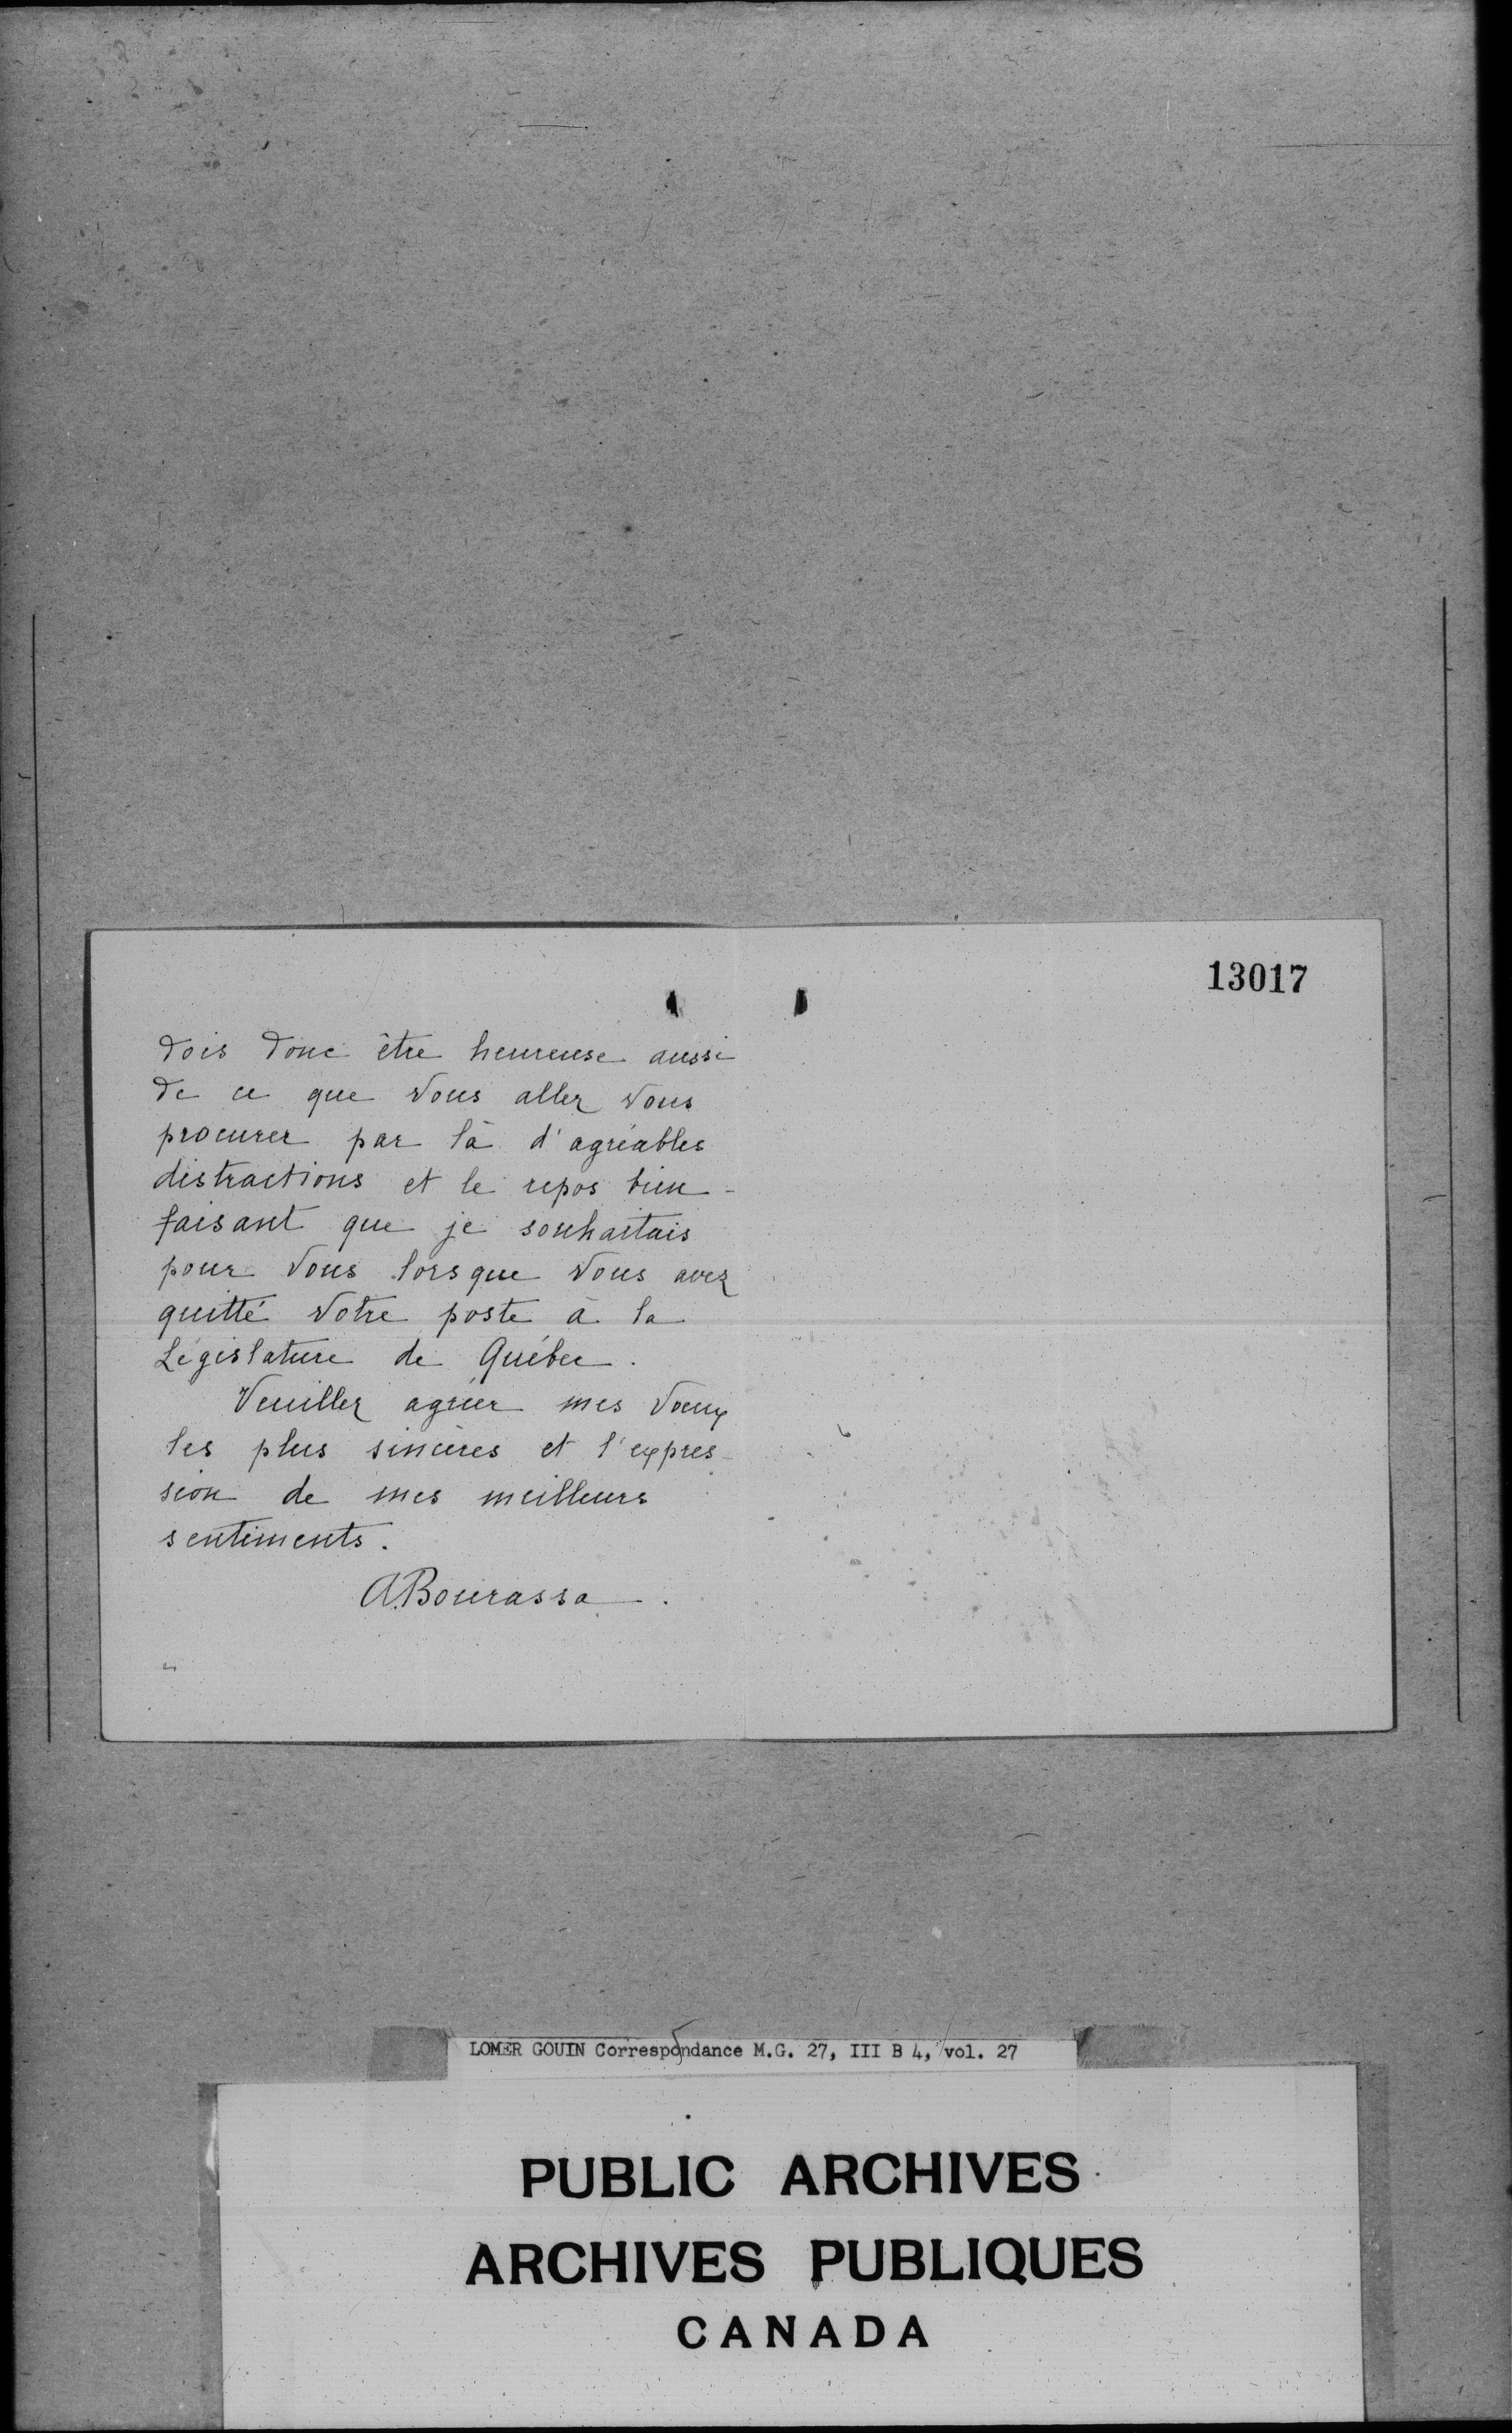 13017
dois donc être heureuse aussi
de ce que vous allez vous
procurer par là d'agréables
distractions et le repos bien-
faisant que je souhaitais
pour vous lorsque vous avez
quitté votre poste à la
Législature de Québec.
Veuillez agréer mes vœux
les plus sincères et l'expres-
sion de mes meilleurs
sentiments.
A. Bourassa.
LOMER GOUIN Correspondance M.G. 27, III B 4, vol. 27
PUBLIC ARCHIVES
ARCHIVES PUBLIQUES
CANADA